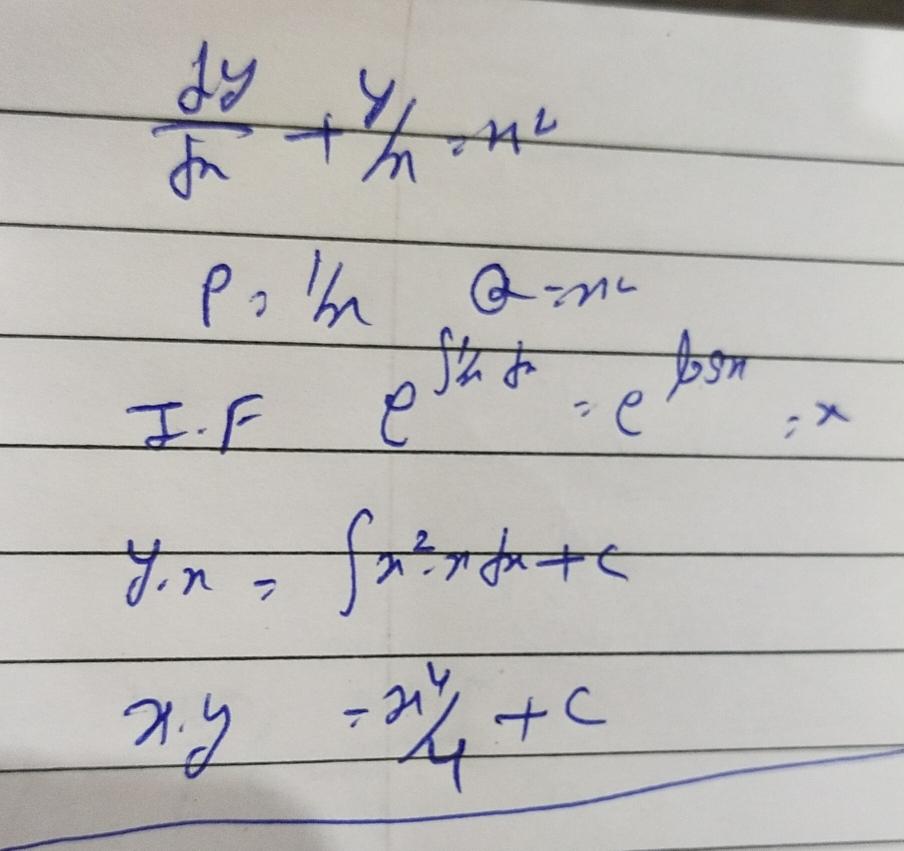 dy/dx + y/x = x²
P = 1/x Q = x²
I.F e^∫1/x dx = e^logx = x
y.x = ∫x².x dx + c
x.y = x⁴/4 + c